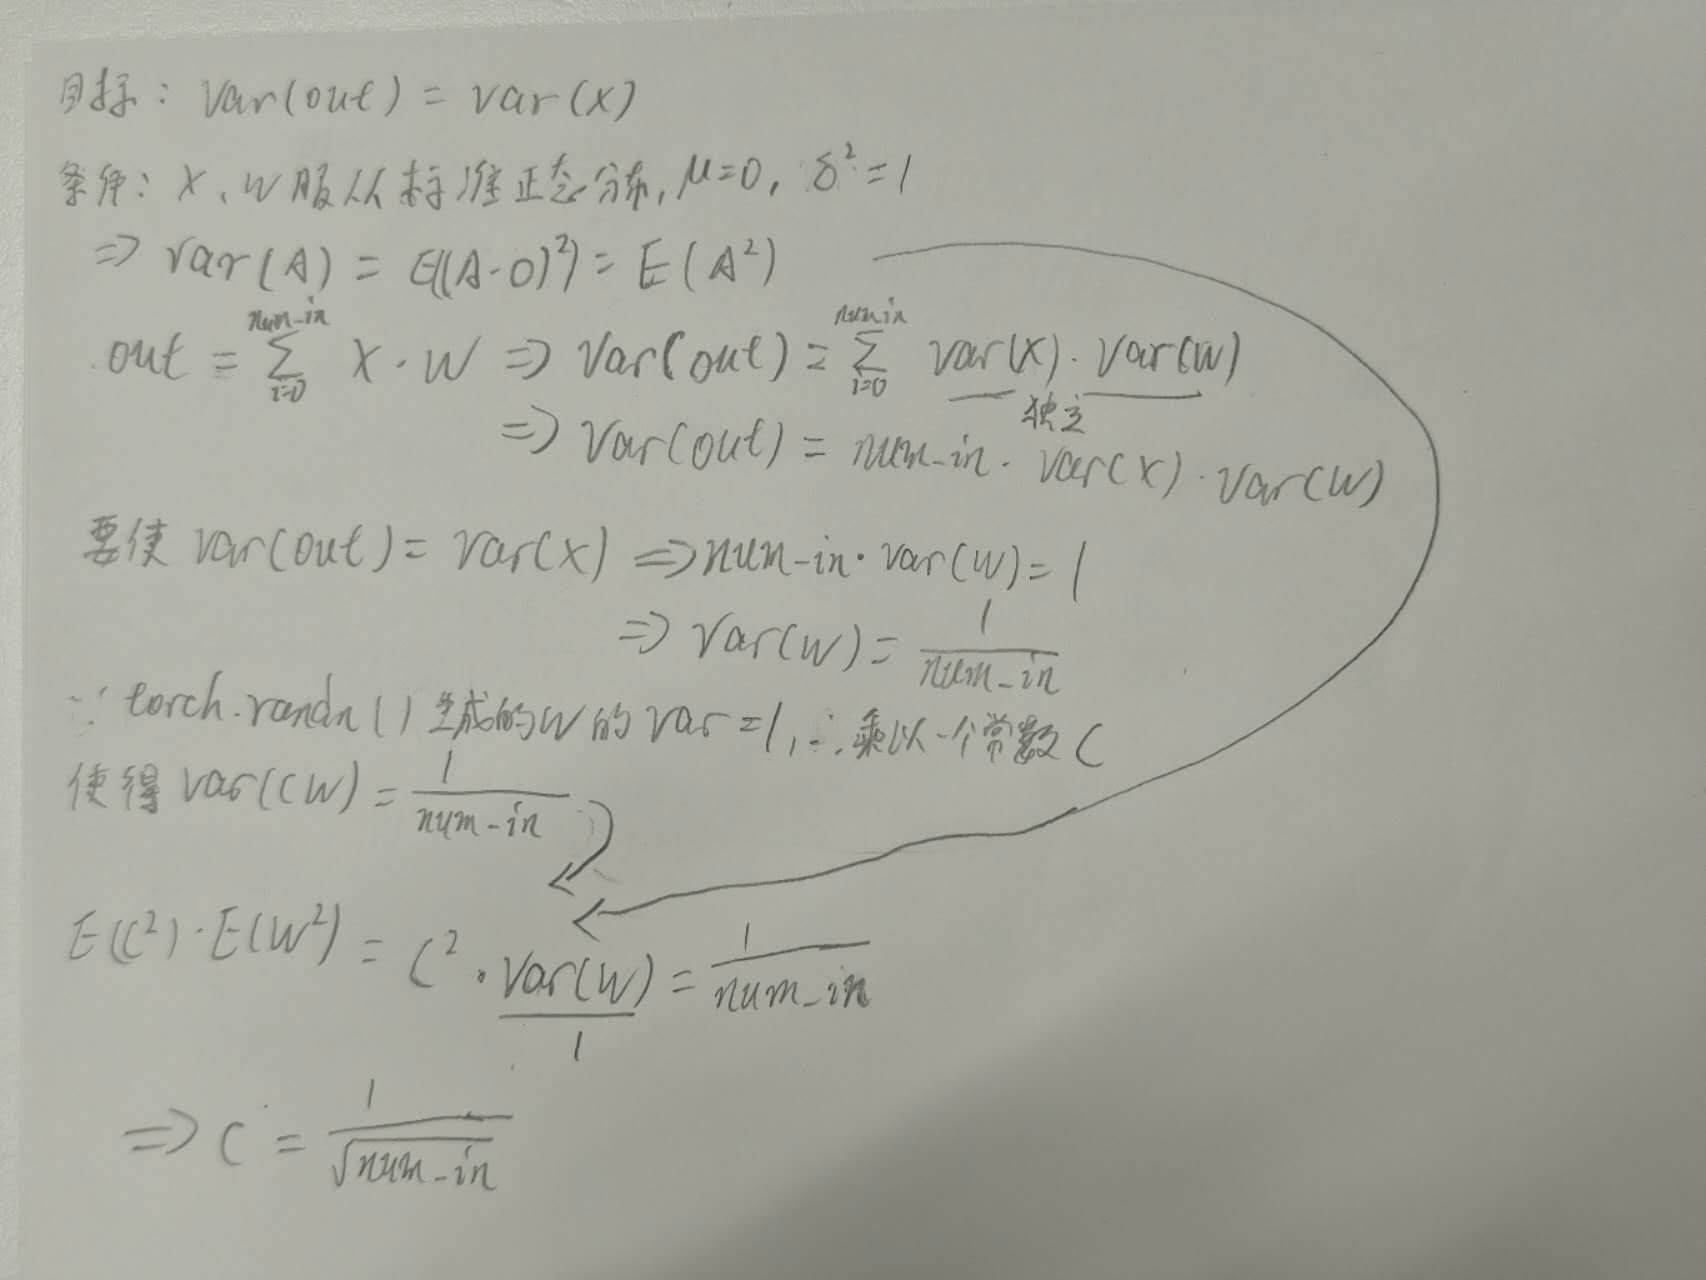 目标: Var(out) = var(X)
条件: X、W服从标准正态分布, μ=0, δ²=1
⇒ Var(A) = E((A-0)²) = E(A²)
out = ∑_{i=0}^{num-in} X·W ⇒ Var(out) = ∑_{i=0}^{num-in} Var(X)·Var(W)
独立
⇒ Var(out) = num-in·Var(X)·Var(W)
要使 Var(out) = Var(X) ⇒ num-in·Var(W) = 1
⇒ Var(W) = 1/num-in
∵ torch.randn()生成的W的Var=1, ∴乘以一个常数C
使得 Var(CW) = 1/num-in
E(C²)·E(W²) = C²·Var(W) = 1/num-in
1
⇒ C = 1/√num-in